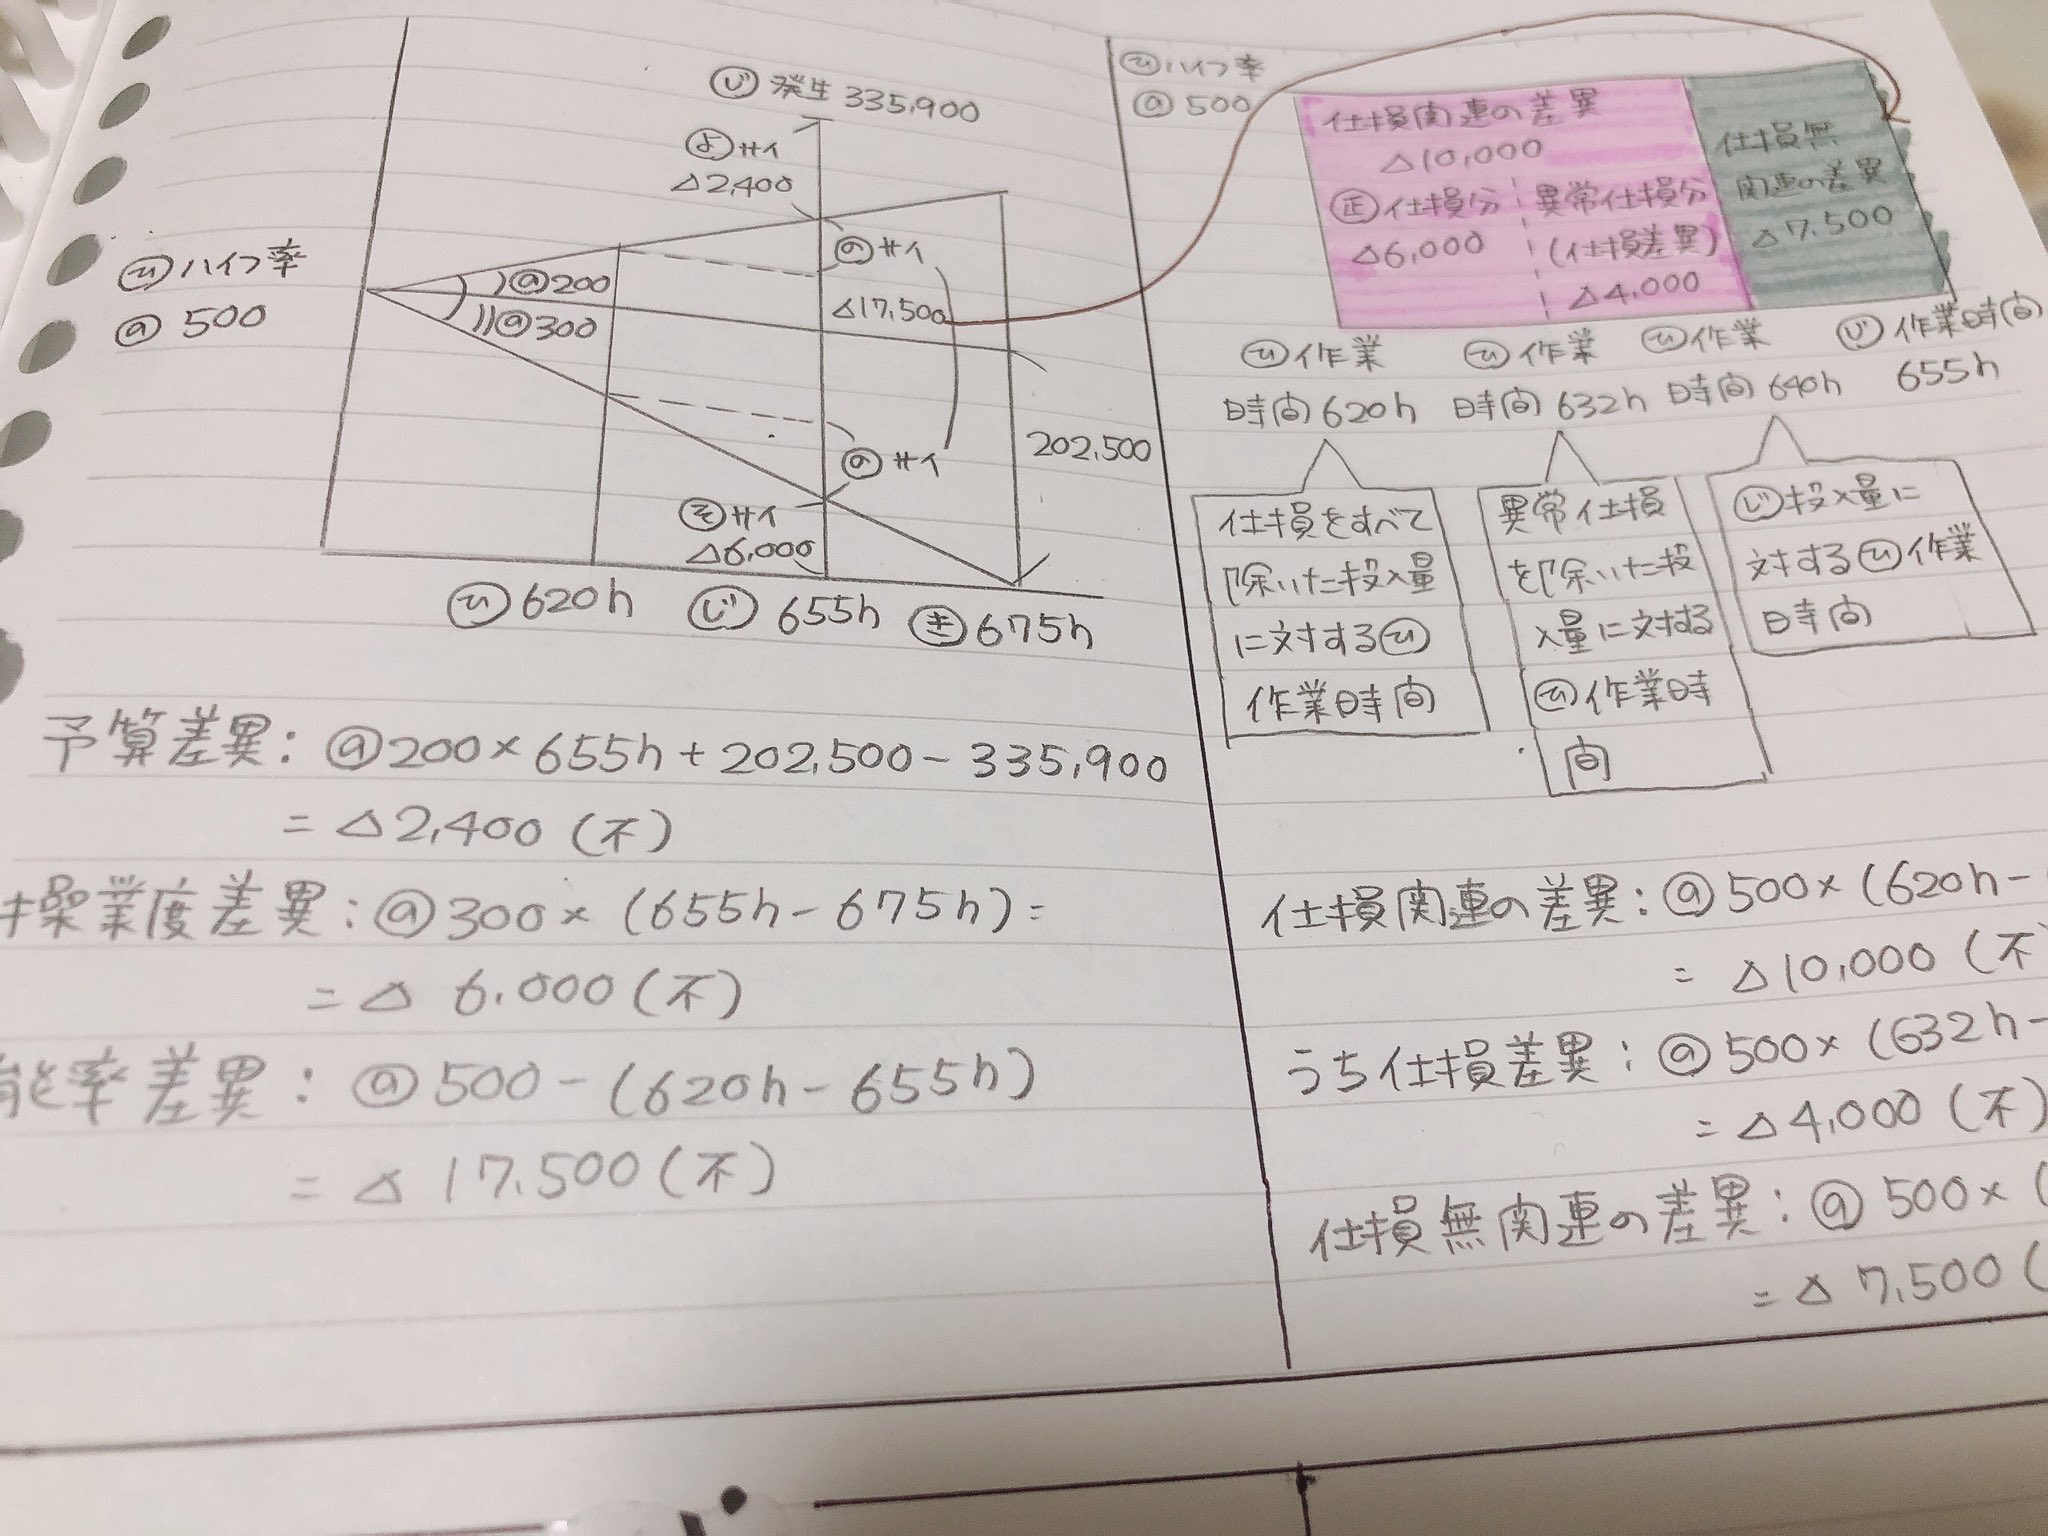 ㋪ハイフ率
@ 500
じ 発生 335,900
よサイ
△2,400
@200
@300
のサイ
△17,500
のサイ
そサイ
△6,000
202,500
ひ 620h じ 655h き 675h
予算差異: @200×655h+202,500-335,900
=△2,400(不)
操業度差異:@300×(655h-675h)=
=△ 6,000(不)
能率差異: @500-(620h-655h)
=△ 17,500(不)
ひハイフ率
@ 500
仕損関連の差異
△10,000
正仕損分
△6,000
異常仕損分
(仕損差異)
△4,000
仕損無
関連の差異
△7,500
ひ作業
時間 620h
ひ作業
時間 632h
ひ作業
時間 640h
じ作業時間
655h
仕損をすべて
除いた投入量
に対するひ
作業時間
異常仕損
を除いた投
入量に対する
ひ作業時
間
じ投入量に
対するひ作業
時間
仕損関連の差異:@500×(620h-
=△10,000(不
うち仕損差異:@500×(632h-
=△4,000(不)
仕損無関連の差異:@500×(
=△ 7,500(